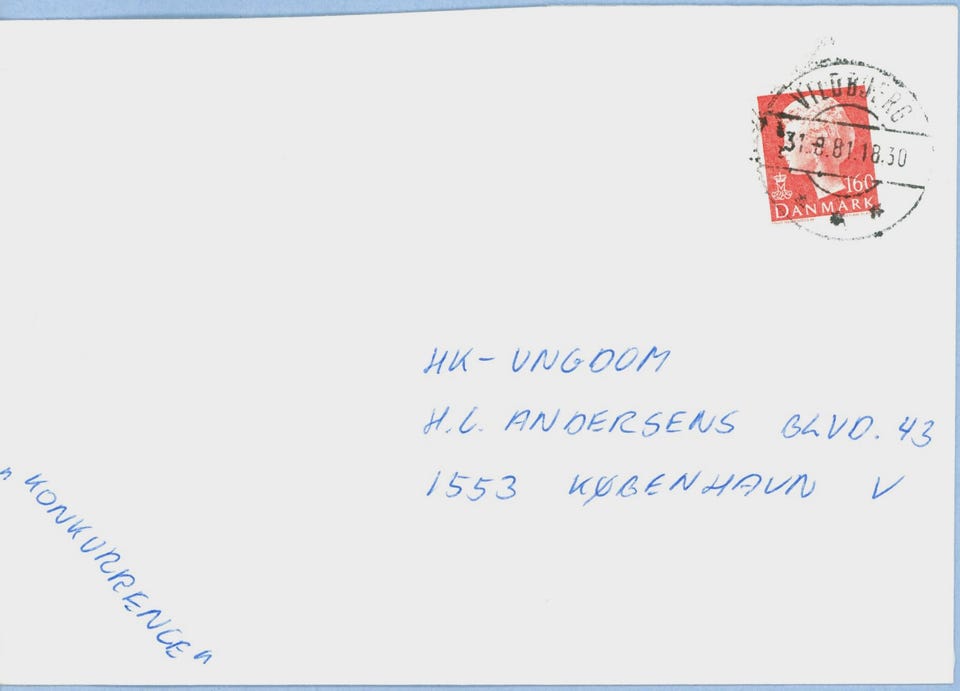 VILDBJERG
31.8.81.18.30
160
DANMARK
HK- UNGDOM
H.C. ANDERSENS BLVD. 43
1553 KØBENHAVN V
"KONKURRENCE"